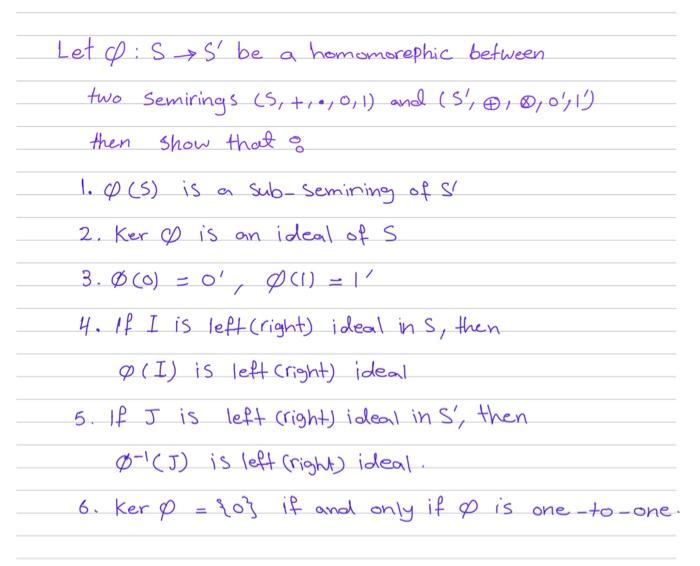 Let φ : S → S' be a homomorephic between
two semirings (S, +, •, 0, 1) and (S', ⊕, ⊗, 0', 1')
then show that :
1. φ(S) is a sub-semiring of S'
2. Ker φ is an ideal of S
3. Ø(0) = 0', Ø(1) = 1'
4. If I is left (right) ideal in S, then
φ(I) is left (right) ideal
5. If J is left (right) ideal in S', then
Ø⁻¹(J) is left (right) ideal.
6. Ker φ = {0} if and only if φ is one-to-one.